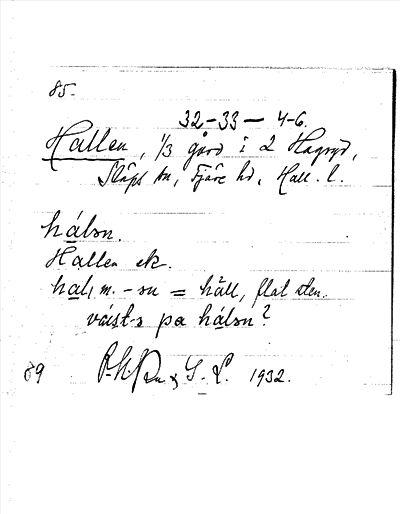 85.
32-33 - 4-6.
Hallen, 1/3 gård i 2 Hagryd,
Släps sn, Fjäre hd, Hall. l.
hálən.
Hallen ek.
hal, m. -ən = häll, flat sten.
pa hálən?
89 & G. L. 1932.